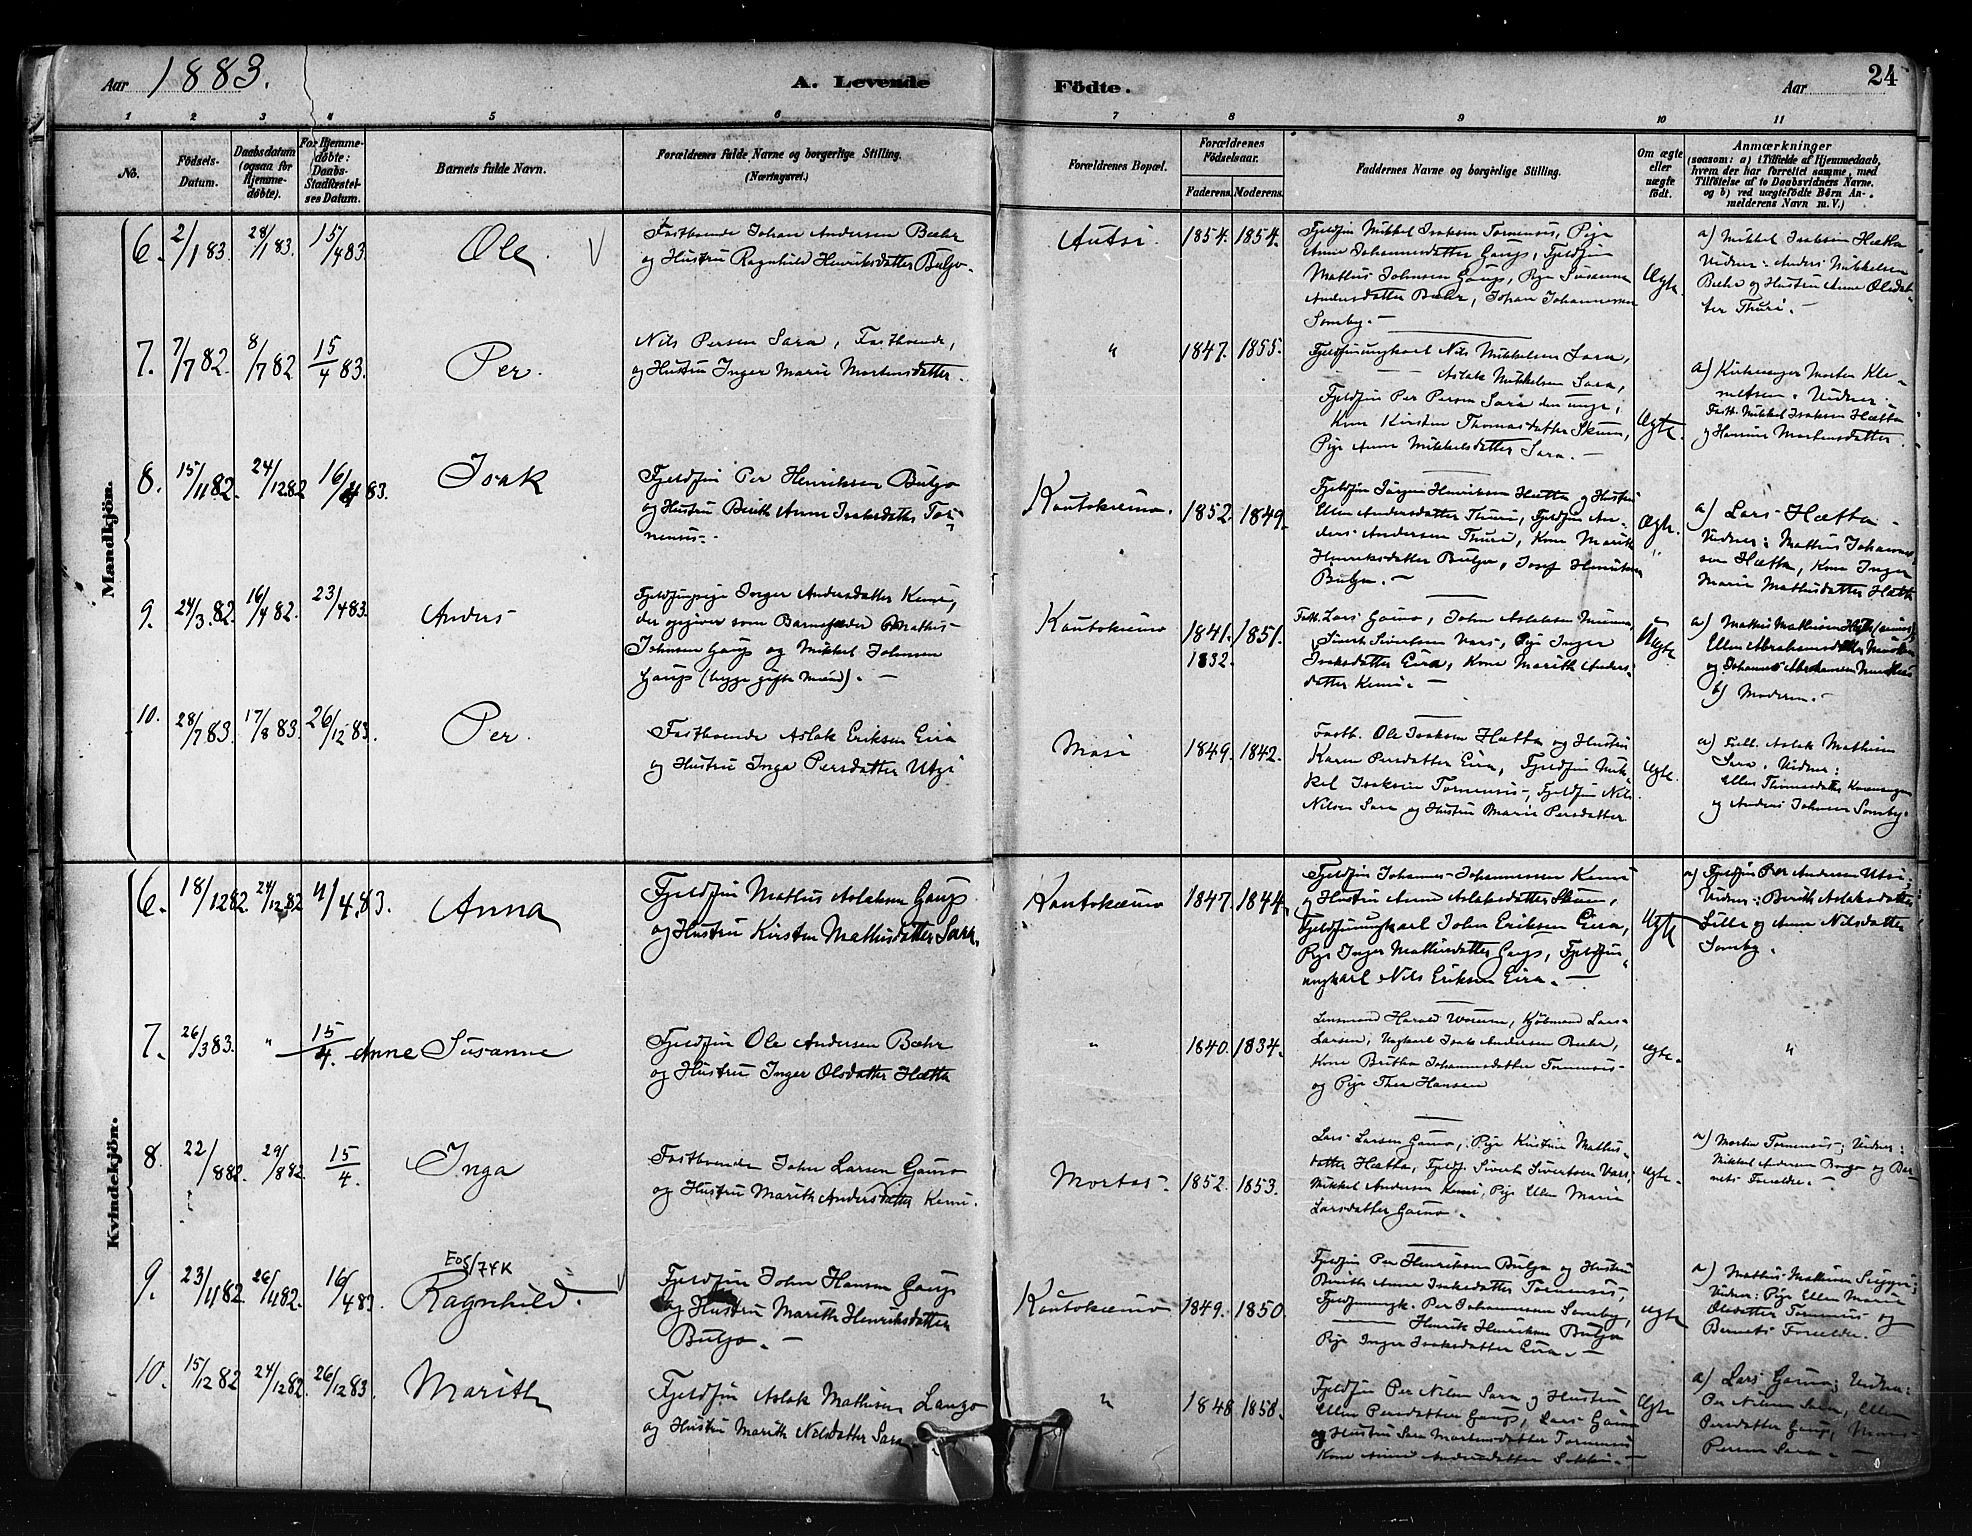 Aar 1883.
A. Levende
Födte.
Aar
24
1 2 3 4 5 6 7 8 9 10 11
No.
Födsels-
Datum.
Daabsdatum
(ogsaa for
Hjemme-
døbte).
For Hjemme-
døbte:
Daabs-
Stadfæstel-
ses Datum.
Barnets fulde Navn.
Forældrenes fulde Navne og borgerlige Stilling.
(Næringsvei.)
Forældrenes Bopæl.
Forældrenes
Födselsaar.
Faderens. Moderens.
Faddernes Navne og borgerlige Stilling.
Om ægte
eller
uægte
født.
Anmærkninger
(saasom: a) i Tilfælde af Hjemmedaab,
hvem der har forrettet samme, med
Tilföielse af to Daabsvidners Navne.
og b) ved uægtefödte Börn An-
melderens Navn m. V.)
Mandkjön.
6. 2/1 83. 28/1 83. 15/4 83. Ole.
Fastboende Johan Andersen Bæhr
og Hustru Ragnhild Henriksdatter Buljo.
Autsi. 1854. 1854.
Fjeldfin Mikkel Isaksen Tornensis, Pige
Anne Johannesdatter Gaup, Fjeldfin
Mathis Johnsen Gaup, Pige Susanna
Andersdatter Bæhr, Johan Johannessen
Somby.
Ægte.
a) Mikkel Isaksen Hætta
Vidner: Anders Mikkelsen
Bæhr og Hustru Anne Olsdat-
ter Thuri.
7. 7/7 82. 8/7 82 15/4 83. Per.
Nils Persen Sara, Fastboende,
og Hustru Inger Marie Mortensdatter.
" 1847. 1855.
Fjeldfinungkarl Nils Mikkelsen Sara,
Aslak Mikkelsen Sara,
Fjeldfin Per Persen Sara den unge,
Kone Kirsten Thomasdatter Skum,
Pige Anne Mikkelsdatter Sara.
Ægte.
a) Kirkesanger Morten Kle-
metsen. Vidner:
Fastb. Mikkel Isaksen Hætta
og Mortensdatter.
8. 15/11 82. 24/12 82 16/4 83. Isak
Fjeldfin Per Henriksen Buljo
og Hustru Birith Anne Isaksdatter Tor-
nensis.
Kautokeino. 1852. 1849.
Fjeldfin Jørgen Henriksen Hætta og Hustru
Ellen Andersdatter Thuri, Fjeldfin An-
ders Andersen Thuri, Kone Marith
Henriksdatter Buljo, Josef Henriksen
Buljo.
Ægte.
a) Lars Hætta
Vidner: Mathis Johannes-
sen Hætta, Kone Inger
Marie Mathisdatter Hætta
9. 24/3 82. 16/4 82. 23/4 83. Anders
Fjeldfinpige Inger Andersdatter Kemi,
der opgiver som Barnefader Mathis
Johnsen Gaup og Mikkel Johnsen
Gaup (begge gifte Mænd).
Kautokeino 1841. 1851.
1832.
Fastb. Lars Gaino, John Aslaksen
Sivert Sivertsen Vars, Pige Inger
Isaksdatter Eira, Kone Marith Anders-
datter Kemi.
Uægte.
a) Mathis Mathisen Hætta
Ellen Abrahamsdatter
og Johannes Abrahamsen
b) Moderen.
10. 28/7 83. 17/8 83. 26/12 83. Per.
Fastboende Aslak Eriksen Eira
og Hustru Inga Persdatter Utzi
Masi 1849. 1842.
Fastb. Ole Isaksen Hætta og Hustru
Karen Persdatter Eira, Fjeldfin Mik-
kel Isaksen Tornensis, Fjeldfin Nils
Nilsen Sara og Hustru Marie Persdatter
Ægte.
a) Aslak Mathisen
Sara. Vidner:
Ellen Thomasdatter
og Anders Johnsen Somby.
Kvindekjön.
6. 18/12 82. 24/12 82 4/4 83. Anna
Fjeldfin Mathis Aslaksen Gaup
og Hustru Kirsten Mathisdatter Sara.
Kautokeino 1847. 1844.
Fjeldfin Johannes Johannessen Kemi
og Hustru Anne Aslaksdatter Skum,
Fjeldfinungkarl John Eriksen Eira,
Pige Inger Mathisdatter Gaup, Fjeldfin-
ungkarl Nils Eriksen Eira.
Ægte
a) Fjeldfin Per Andersen Utsi;
Vidner: Berith Aslaksdatter
og Anne Nilsdatter
Somby.
7. 26/3 83. " 15/4. Anne Susanne
Fjeldfin Ole Andersen Bæhr
og Hustru Inger Olsdatter Hætta
" 1840. 1834.
Lensmand Harald Kjøbmand Lars
Larsen, Ungkarl Isak Andersen Bæhr,
Kone Britha Johannesdatter Tornensis
og Pige Thea Hansen
ægte.
"
8. 22/8 82. 29/8 82 15/4. Inga
Fastboende John Larsen Gaino
og Hustru Marith Andersdatter Kemi.
Mortas 1852. 1853.
Lars Larsen Gaino, Pige Kristine Mathis-
datter Hætta, Fjeldf. Sivert Sivertsen Vars,
Mikkel Andersen Kemi, Pige Ellen Marie
Larsdatter Gaino.
ægte.
a) Morten Tornensis; Vidner:
Mikkel Andersen og Bar-
nets Forældre.
9. 23/11 82. 26/11 82. 16/4 83. Ragnhild.
EOS/74K
Fjeldfin John Hansen Gaup
og Hustru Marith Henriksdatter
Buljo.
Kautokeino 1849. 1850.
Fjeldfin Per Henriksen Buljo og Hustru
Birith Anne Isaksdatter Tornensis,
Fjeldfinungk. Per Johannessen Somby,
Henrik Henriksen Buljo
Pige Inger Isaksdatter Eira.
ægte
a) Mathis Mathisen
Vidner: Pige Ellen Marie
Olsdatter Tornensis og
Barnets Forældre.
10. 15/12 82 24/12 82. 26/12 83. Marith
Fjeldfin Aslak Mathisen Lango
og Hustru Marith Nilsdatter Sara
" 1848 1858.
Fjeldfin Per Nilsen Sara og Hustru
Ellen Persdatter Gaup, Lars Gaino
og Hustru Sara Mortensdatter Tornensis
Kone Anne Andersdatter
Ægte
a) Lars Gaino; Vidner:
Per Nilsen Sara, Ellen
Persdatter Gaup,
Persen Sara.